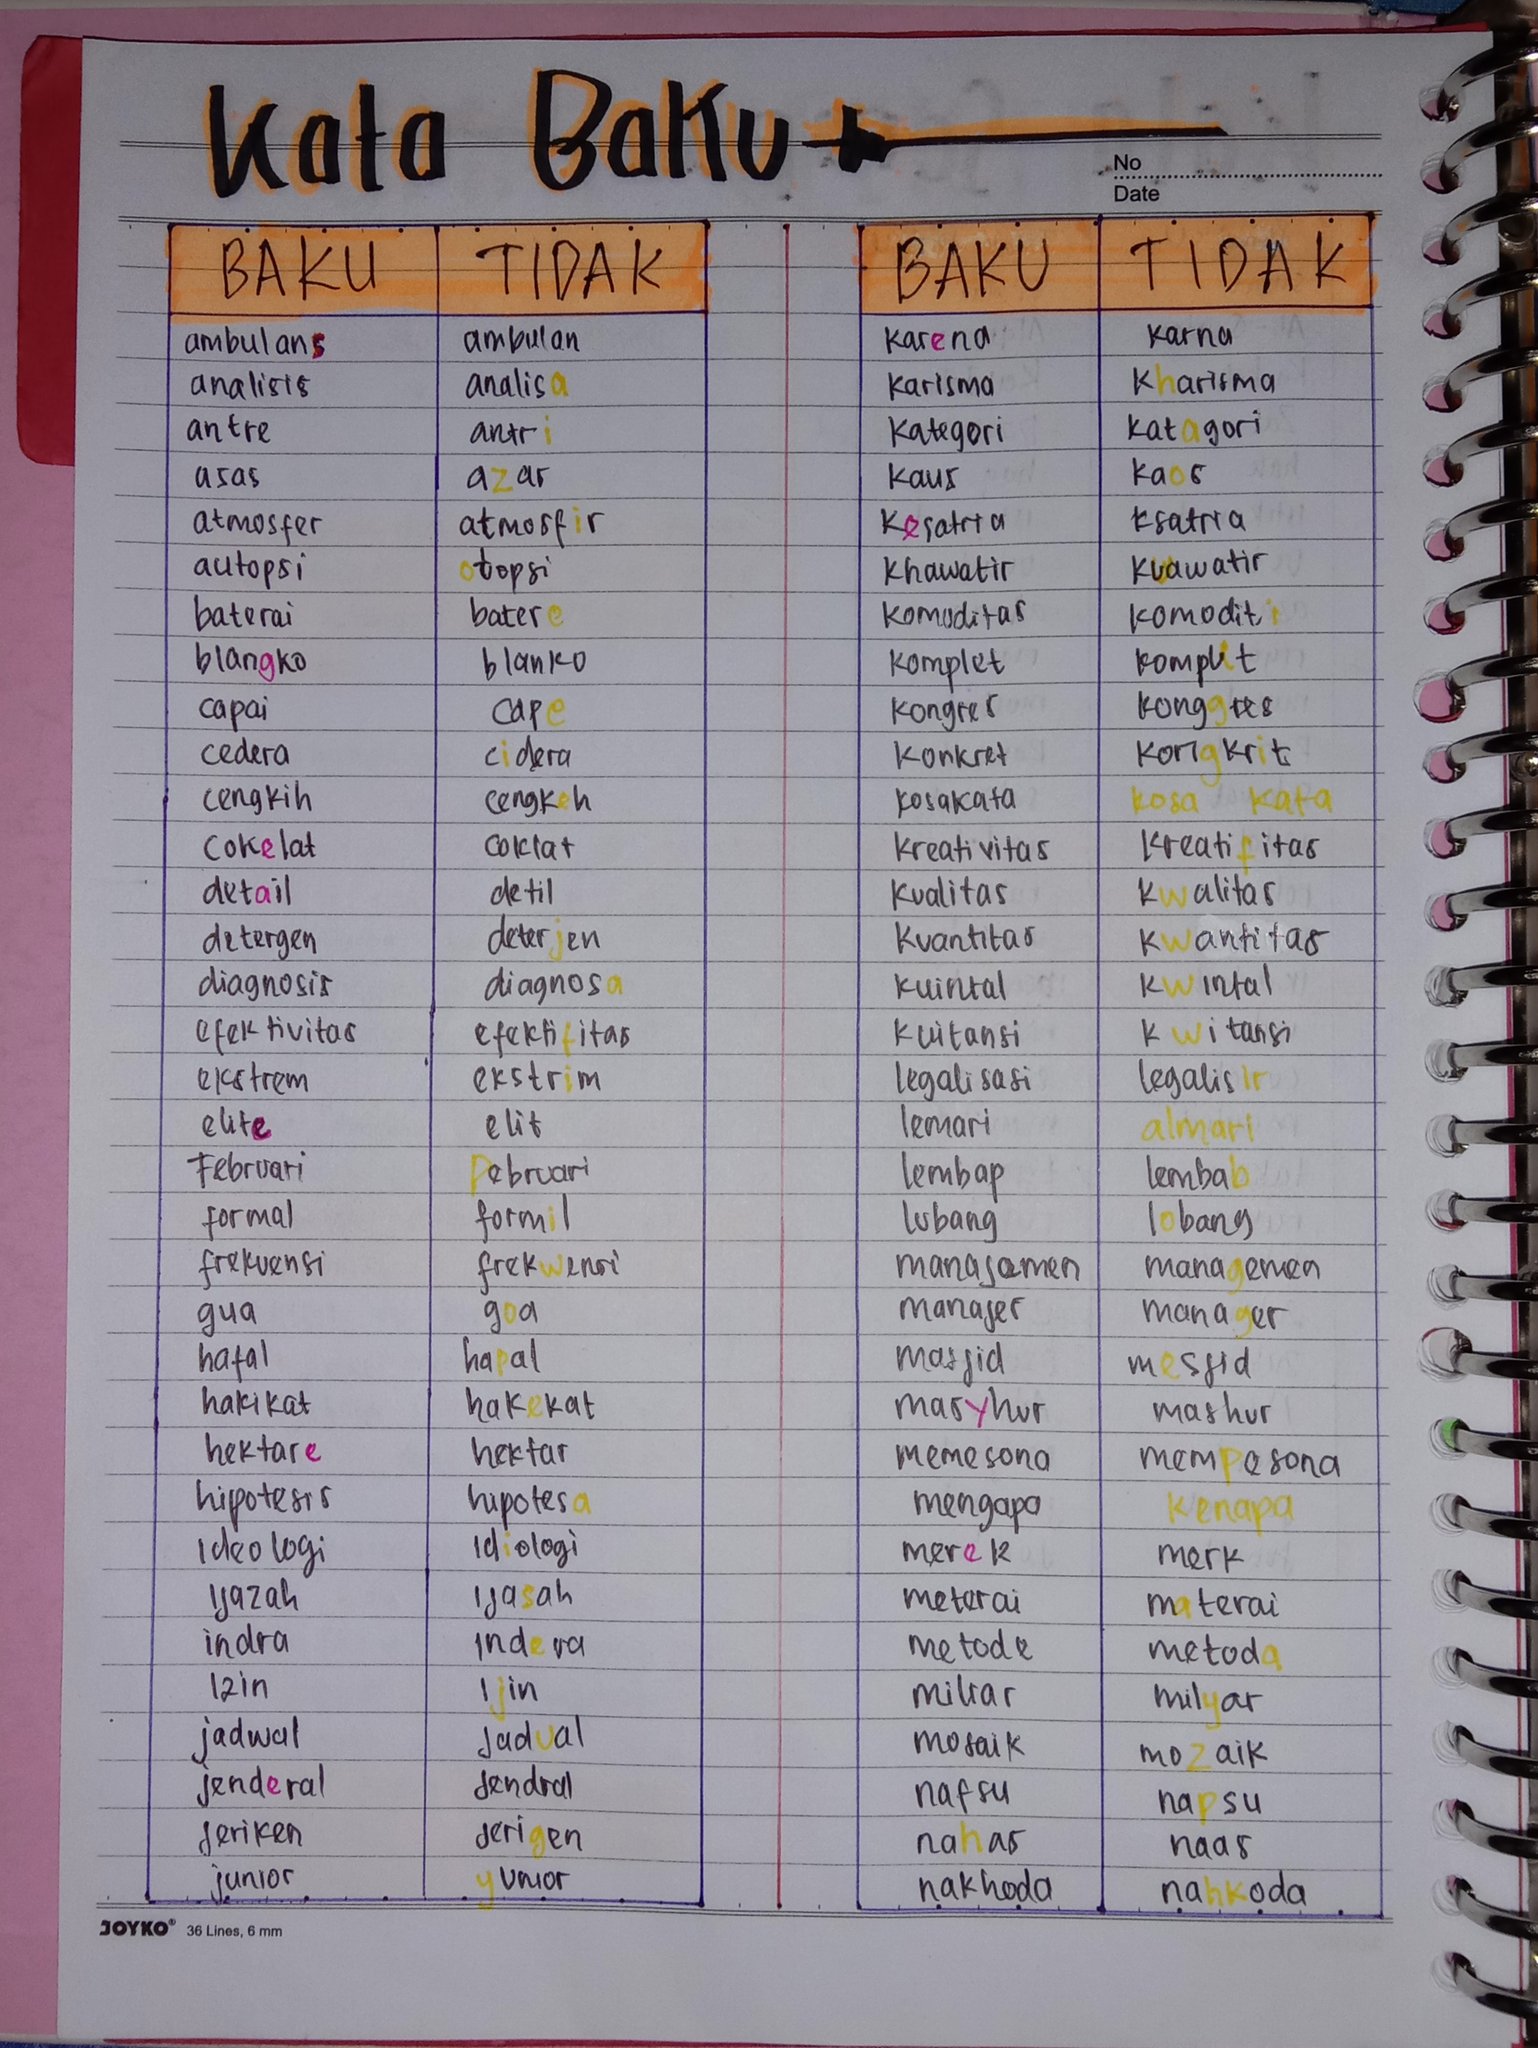 Kata Baku
No
Date
BAKU TIDAK
ambulans ambulan
analisis analisa
antre antri
asas azas
atmosfer atmosfir
autopsi otopsi
baterai batere
blangko blanko
capai cape
cedera cidera
cengkih cengkeh
cokelat coklat
detail detil
detergen deterjen
diagnosis diagnosa
efektivitas efektifitas
ekstrem ekstrim
elite elit
Februari Pebruari
formal formil
frekuensi frekwensi
gua goa
hafal hapal
hakikat hakekat
hektare hektar
hipotesis hipotesa
ideologi idiologi
ijazah ijasah
indra indera
izin ijin
jadwal jadual
jenderal jendral
jeriken jerigen
junior yunior
BAKU TIDAK
karena karna
karisma kharisma
kategori katagori
kaus kaos
kesatria ksatria
khawatir kuawatir
komoditas komoditi
komplet komplit
kongres konggres
konkret kongkrit
kosakata kosa kata
kreativitas kreatifitas
kualitas kwalitas
kuantitas kwantitas
kuintal kwintal
kuitansi kwitansi
legalisasi legalisir
lemari almari
lembap lembab
lubang lobang
manajemen managemen
manajer manager
masjid mesjid
masyhur mashur
memesona mempesona
mengapa kenapa
merek merk
meterai materai
metode metoda
miliar milyar
mosaik mozaik
nafsu napsu
nahas naas
nakhoda nahkoda
JOYKO® 36 Lines, 6 mm